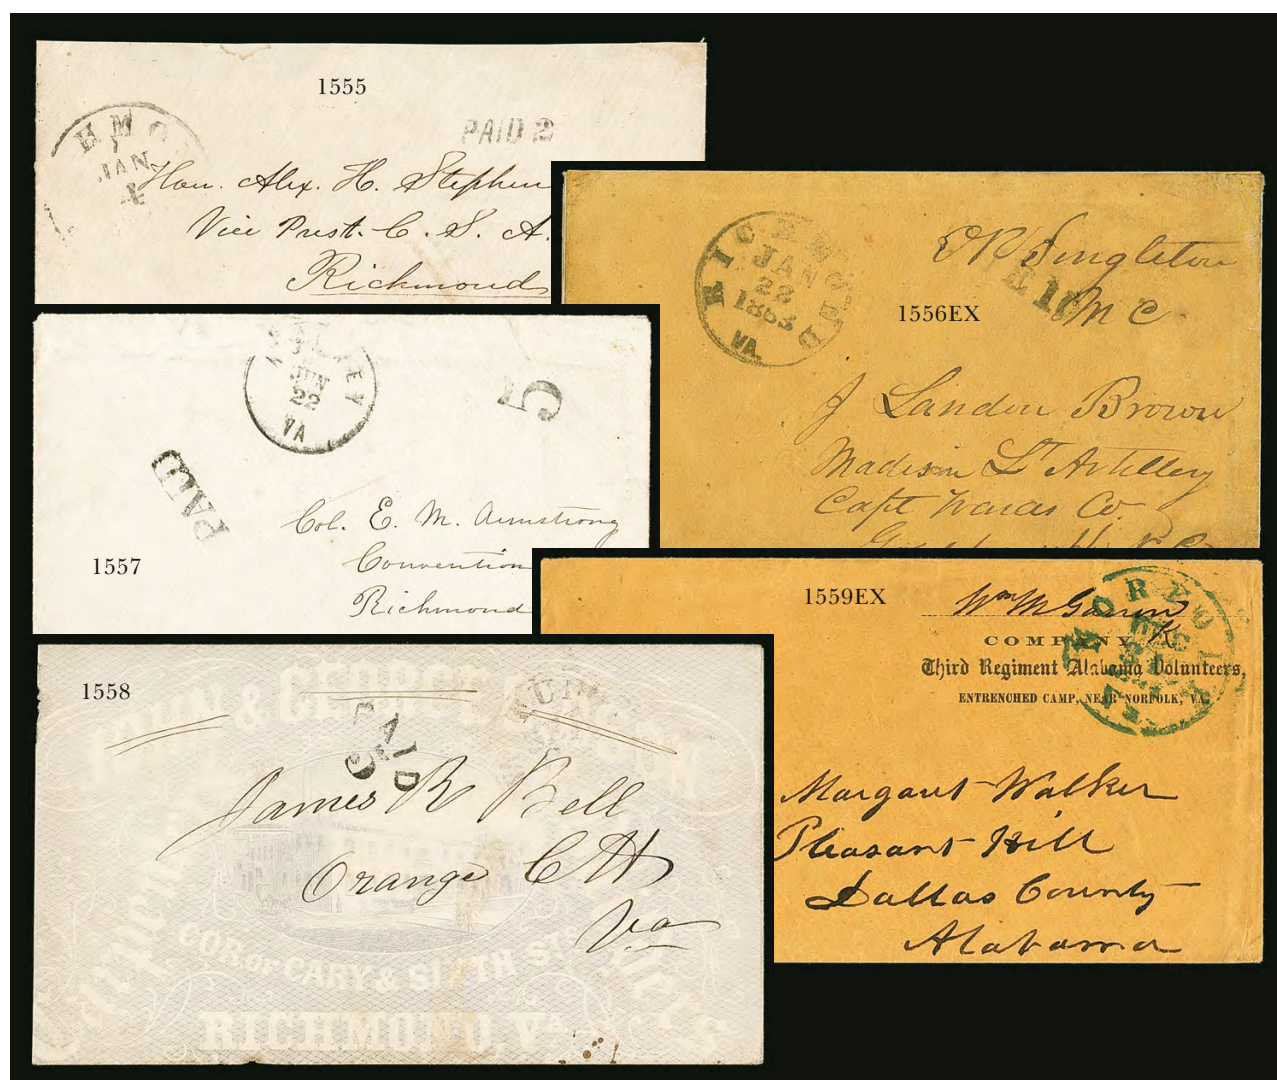 1555
HMO
JAN
4
PAID 2
Hon. Alex. H. Stephen
Vice Prest. C. S. A.
Richmond
RICHMOND
JAN
22
1863
VA.
O R Singleton
M C
1556EX
J Landon Brown
Madison Lt Artillery
Capt
Co
JUN
22
VA
5
PAID
Col. E. M. Armstrong
Convention
Richmond
1557
1559EX
COMPANY K
Third Regiment Alabama Volunteers,
ENTRENCHED CAMP, NEAR NORFOLK, VA.
Margaret Walker
Pleasant Hill
Dallas County
Alabama
1558
PAID
5
James R Bell
Orange CH
Va
COR OF CARY & SIXTH STS
RICHMOND, VA